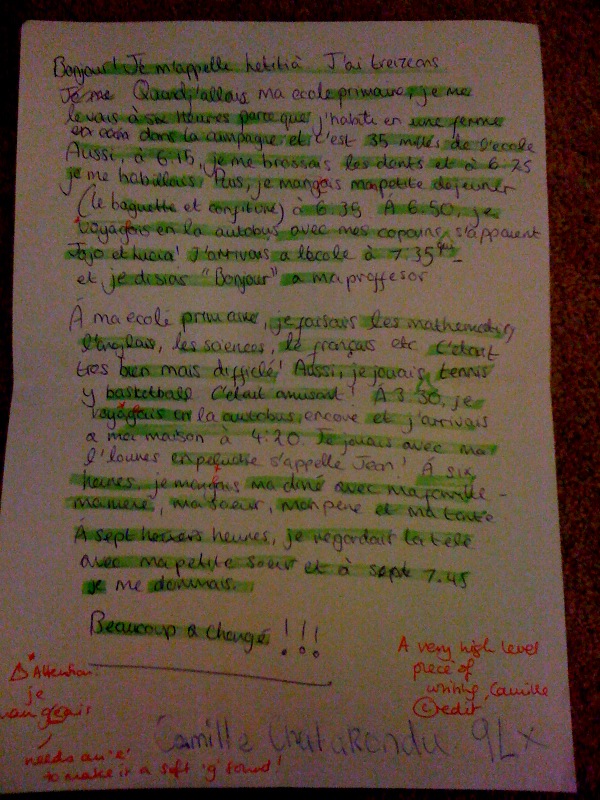 Bonjour! Je m'appelle Letitia J'ai treize ans
Je me Quand j'allais ma ecole primaire, je me
levais à six heures parce que j'habite en une ferme
en dans la campagne et c'est 35 miles de l'ecole
Aussi, à 6.15, je me brossais les dants et à 6.25
je me habillais. Puis, je mangais ma petite dejeuner
(le baguette et confiture) à 6.35 À 6.50, je
voyagais en la autobus avec mes copains, s'appaient
Jojo et Lucia! J'arrivais a l'ecole à 7.35
et je disias "Bonjour" a ma proffesor
À ma ecole primaire, je faisais les mathematics,
l'englais, les sciences, le français etc C'etait
tres bien mais difficile! Aussi, je jouais tennis
y basketball C'etait amusant! À 3.30, je
voyagais en la autobus, encore et j'arrivais
a ma maison à 4:20. Je jouais avec ma
l'lounes en peluche s'appelle Jean! À six
heures, je mangais ma diné avec ma famille -
ma mere, ma soeur, mon pere et ma tante
À sept heures, je regardais la télé
avec ma petite soeur et à 7.45
je me dormais.
Beaucoup a changé !!!
Attention!
je
mangeais
needs an 'e'
to make it a soft 'g' sound!
A very high level
piece of
writing, Camille
Credit
Camille Chatakondu 9Lx